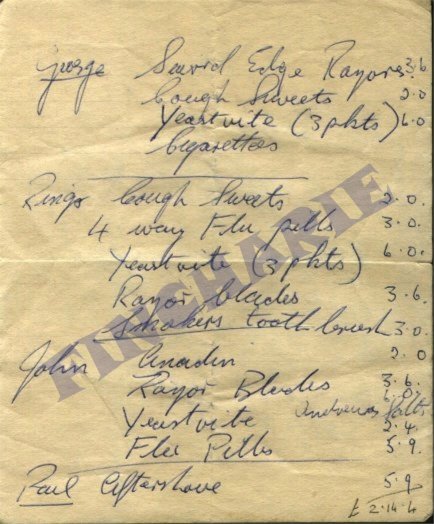 George Sword Edge Razors 3.6
Cough Sweets 2.0
Yeastvite (3 pkts) 6.0
Cigarettes
Ringo Cough Sweets 2.0.
4 way Flu pills 3.0.
Yeastvite (3 pkts) 6.0.
Razor blades 3.6.
Smokers tooth brush 3.0.
John Anadin 2.0
Razor Blades 3.6.
Yeastvite 6.0.
Andrews Salts 2.4.
Flu Pills 5.9.
Paul Aftershave 5.9
£ 2.14.4
FINCHARIE